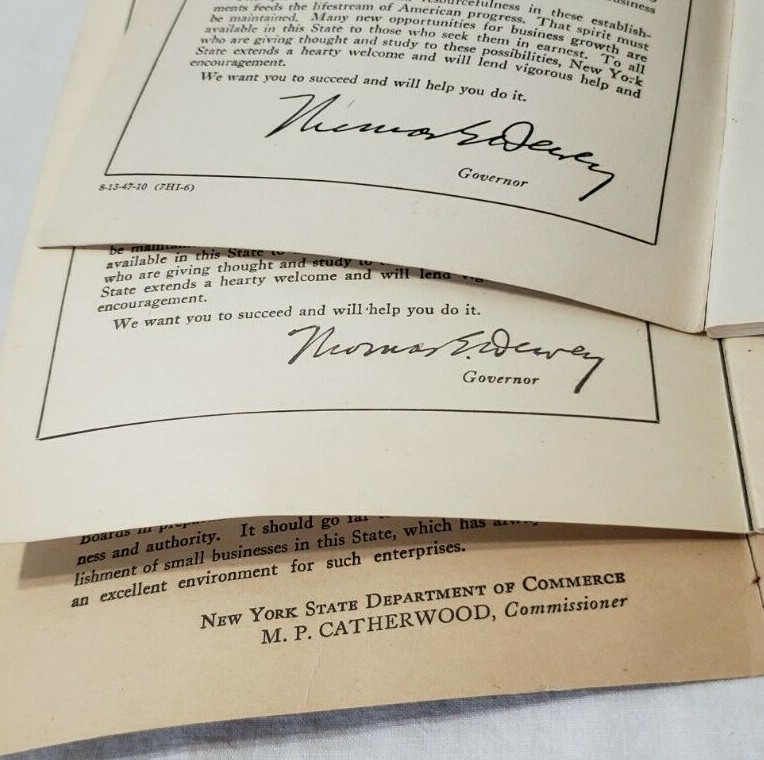 resourcefulness in these establish-
ments feeds the lifestream of American progress. That spirit must
be maintained. Many new opportunities for business growth are
available in this State to those who seek them in earnest. To all
who are giving thought and study to these possibilities, New York
State extends a hearty welcome and will lend vigorous help and
encouragement.
We want you to succeed and will help you do it.
Thomas E. Dewey
Governor
8-13-47-10 (7HI-6)
available in this State to
who are giving thought and study to
State extends a hearty welcome and will lend
encouragement.
We want you to succeed and will help you do it.
Thomas E. Dewey
Governor
Boards in
ness and authority. It should go far
lishment of small businesses in this State, which has
an excellent environment for such enterprises.
NEW YORK STATE DEPARTMENT OF COMMERCE
M. P. CATHERWOOD, Commissioner